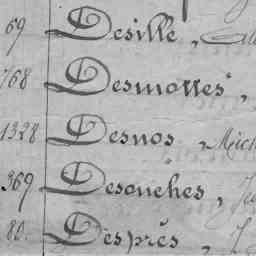 69 Desille,
768 Desmottes,
1328 Desnos, Mich
369 Desouches, Je
80. Després, J